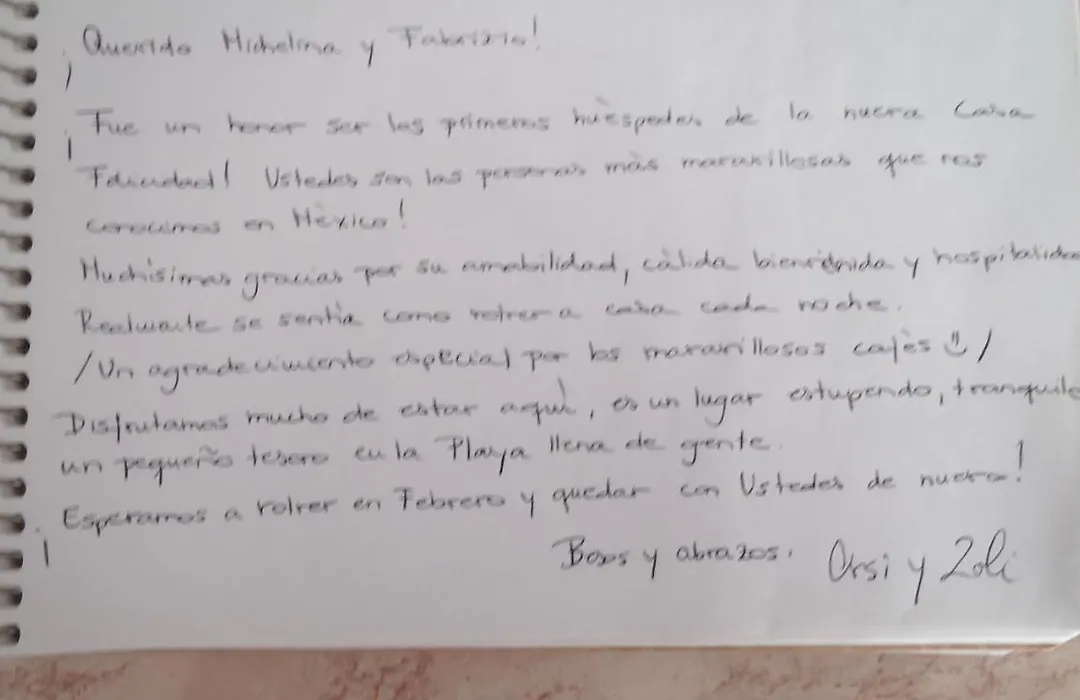 ¡Querido Michelina y Fabrizio!
¡Fue un honor ser los primeros huèspedes de la nueva Casa
Felicidad! Ustedes son las personas màs maravillosas que nos
conocimos en Mèxico!
Muchìsimas gracias por su amabilidad, càlida bienvenida y hospitalidad
Realmente se sentìa como volver a casa cada noche.
/Un agradecimiento especial por los maravillosos cafès ☺/
Disfrutamos mucho de estar aquì, es un lugar estupendo, tranquilo
un pequeño tesoro en la Playa llena de gente.
¡Esperamos a volver en Febrero y quedar con Ustedes de nuevo!
Besos y abrazos. Orsi y Zoli